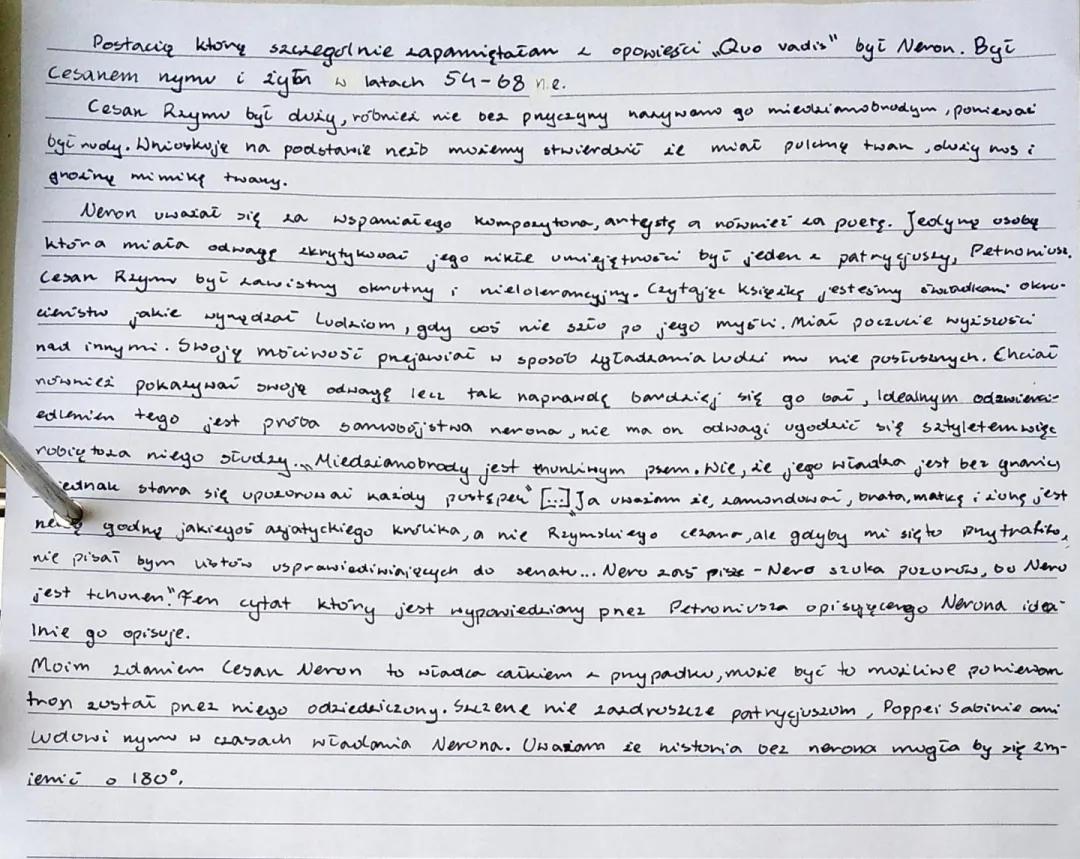 Postacią którą szczególnie zapamiętałam z opowieści „Quo vadis" był Neron. Był
Cesarzem rzymu i żył w latach 54-68 n.e.
Cesarz Rzymu był duży, również nie bez przyczyny nazywano go miedzianobrodym, ponieważ
był rudy. Wnioskuję na podstawie rzeźb możemy stwierdzić że miał pulchną twarz, duży nos i
groźną mimikę twarzy.
Neron uważał się za wspaniałego kompozytora, artystę a również za poetę. Jedyną osobą
która miała odwagę skrytykować jego nikłe umiejętności był jeden z patrycjuszy, Petroniusz.
Cesarz Rzymu był zawistny okrutny i nietolerancyjny. Czytając książkę jesteśmy świadkami okru-
cieństw jakie wyrządzał ludziom, gdy coś nie szło po jego myśli. Miał poczucie wyższości
nad innymi. Swoją mściwość przejawiał w sposób zgładzania ludzi mu nie posłusznych. Chciał
również pokazywać swoją odwagę lecz tak naprawdę bardziej się go bał, Idealnym odzwierci-
edleniem tego jest próba samobójstwa nerona, nie ma on odwagi ugodzić się sztyletem więc
robią to za niego słudzy. „Miedzianobrody jest thurliwym psem. Wie, że jego władza jest bez granic,
jednak stara się upozorować każdy postępek" [...] „Ja uważam że, zamordować, brata, matkę i żonę jest
rzeczą godną jakiegoś azjatyckiego królika, a nie Rzymskiego cezara, ale gdyby mi się to przytrafiło,
nie pisał bym listów usprawiedliwiających do senatu... Nero zaś pisze - Nero szuka pozorów, bo Nero
jest tchórzem." Ten cytat który jest wypowiedziany przez Petroniusza opisującego Nerona idea-
lnie go opisuje.
Moim zdaniem Cesarz Neron to władca całkiem z przypadku, może być to możliwe ponieważ
tron został przez niego odziedziczony. Szczerze nie zazdroszczę patrycjuszom, Poppei Sabinie ani
ludowi rzymu w czasach władania Nerona. Uważam że historia bez nerona mogła by się zm-
ienić o 180°.